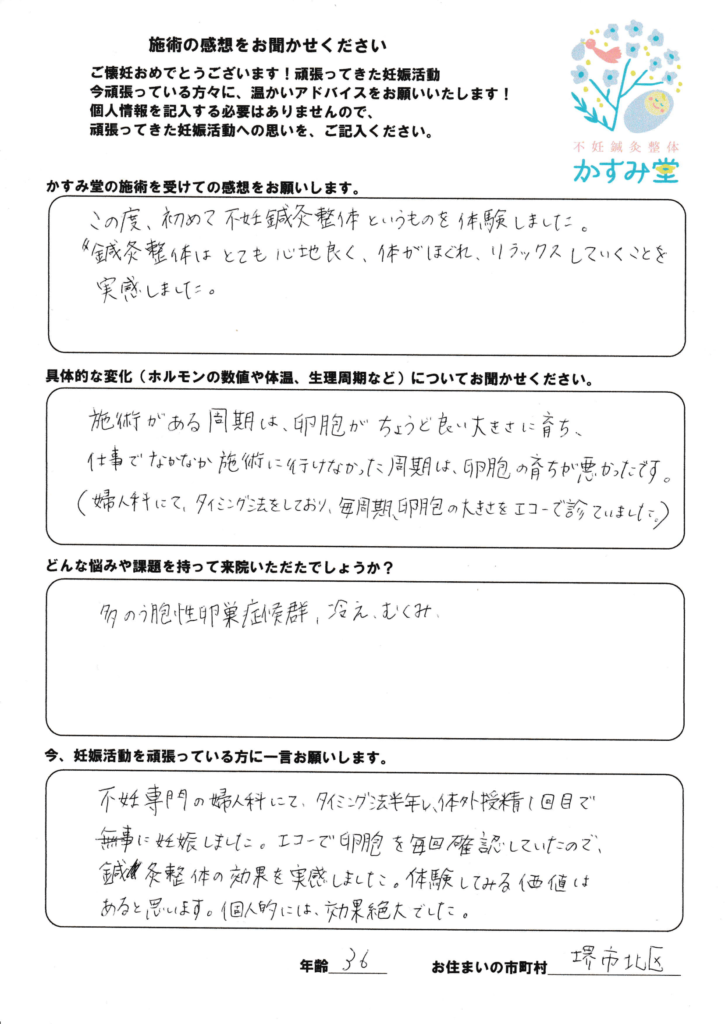 施術の感想をお聞かせください
ご懐妊おめでとうございます！頑張ってきた妊娠活動
今頑張っている方々に、温かいアドバイスをお願いいたします！
個人情報を記入する必要はありませんので、
頑張ってきた妊娠活動への思いを、ご記入ください。
不妊鍼灸整体
かすみ堂
かすみ堂の施術を受けての感想をお願いします。
この度、初めて不妊鍼灸整体というものを体験しました。
鍼灸整体はとても心地良く、体がほぐれ、リラックスしていくことを
実感しました。
具体的な変化（ホルモンの数値や体温、生理周期など）についてお聞かせください。
施術がある周期は、卵胞がちょうど良い大きさに育ち、
仕事でなかなか施術に行けなかった周期は、卵胞の育ちが悪かったです。
（婦人科にて、タイミング法をしており、毎周期、卵胞の大きさをエコーで診ていました。）
どんな悩みや課題を持って来院いただたでしょうか？
多のう胞性卵巣症候群、冷え、むくみ、
今、妊娠活動を頑張っている方に一言お願いします。
不妊専門の婦人科にて、タイミング法半年し、体外授精1回目で
無事に妊娠しました。エコーで卵胞を毎回確認していたので、
鍼灸整体の効果を実感しました。体験してみる価値は
あると思います。個人的には、効果絶大でした。
年齢 36 お住まいの市町村 堺市北区